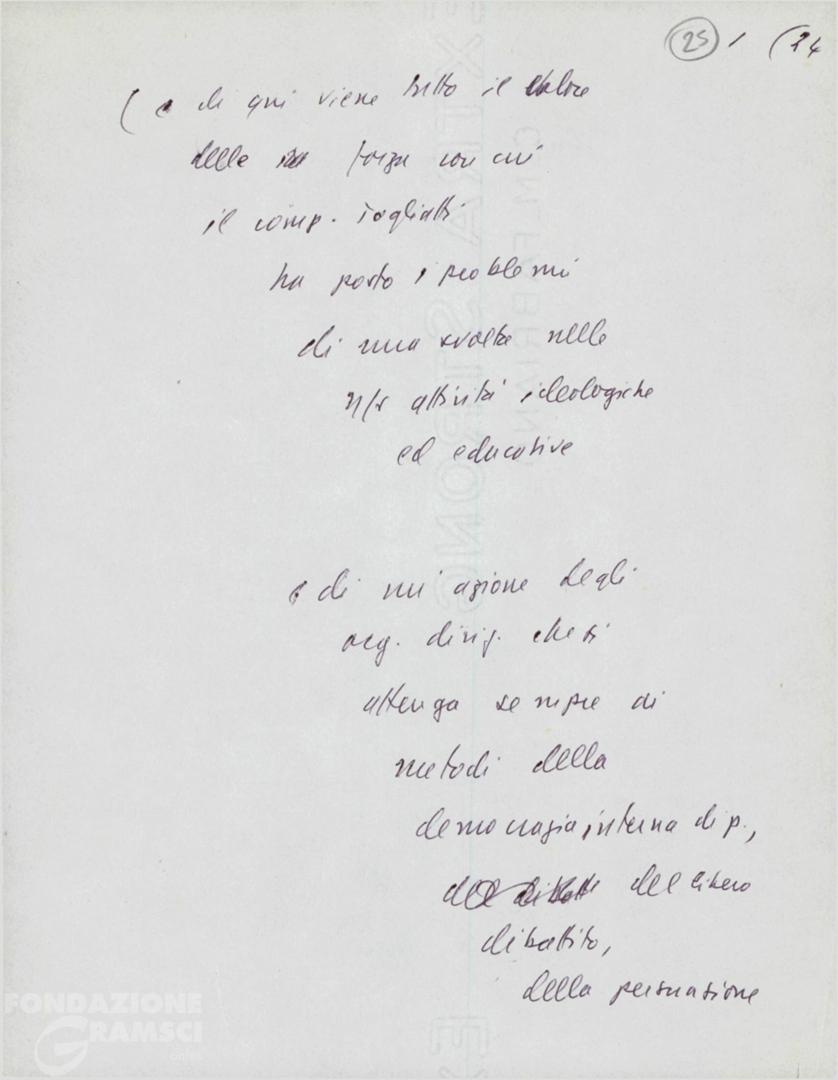 25 / (24
( e di qui viene tutto il valore
della forza con cui
il comp. Togliatti
ha posto i problemi
di una svolta nelle
n/s attività ideologiche
ed educative
e di un'azione degli
org. dirig. che si
attenga sempre ai
metodi della
democrazia interna di p.,
del libero
dibattito,
della persuasione
FONDAZIONE
GRAMSCI
onlus